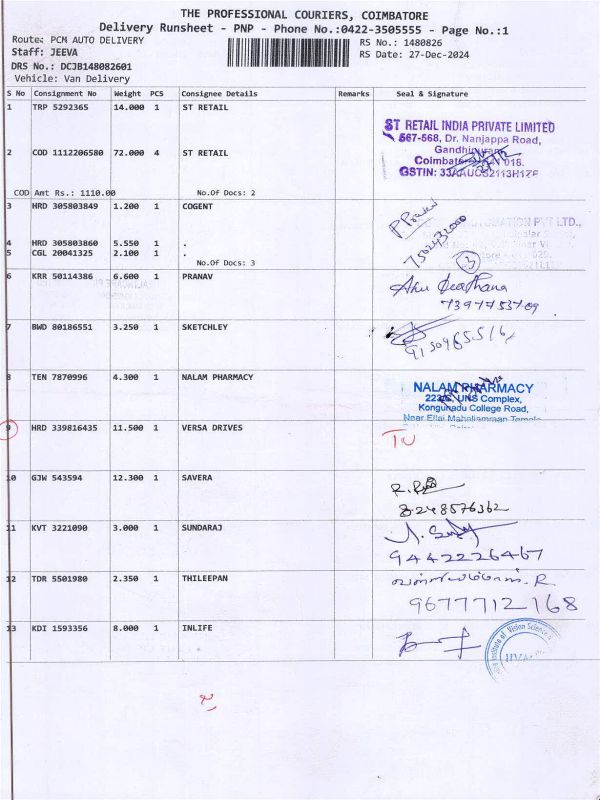 THE PROFESSIONAL COURIERS, COIMBATORE
Delivery Runsheet - PNP - Phone No.:0422-3505555 - Page No.:1
Route: PCM AUTO DELIVERY
RS No.: 1480826
Staff: JEEVA
RS Date: 27-Dec-2024
DRS No.: DCJB148082601
Vehicle: Van Delivery
S No Consignment No Weight PCS Consignee Details Remarks Seal & Signature
1 TRP 5292365 14.000 1 ST RETAIL
ST RETAIL INDIA PRIVATE LIMITED
567-568, Dr. Nanjappa Road,
Gandhipuram,
2 COD 1112206580 72.000 4 ST RETAIL
Coimbatore
018.
GSTIN:
COD Amt Rs.: 1110.00 No.Of Docs: 2
3 HRD 305803849 1.200 1 COGENT
PVT LTD.,
4 HRD 305803860 5.550 1 .
5 CGL 20041325 2.100 1 .
No.Of Docs: 3
3
6 KRR 50114386 6.600 1 PRANAV
7397753709
7 BWD 80186551 3.250 1 SKETCHLEY
8 TEN 7870996 4.300 1 NALAM PHARMACY
NALAM PHARMACY
UNS Complex,
Kongunadu College Road,
Near Ellai Mahaliamman Temple
9 HRD 339816435 11.500 1 VERSA DRIVES
10 GJW 543594 12.300 1 SAVERA
8248576362
11 KVT 3221090 3.000 1 SUNDARAJ
9442226467
12 TDR 5501980 2.350 1 THILEEPAN
9677712168
13 KDI 1593356 8.000 1 INLIFE
Institute of Vision Science